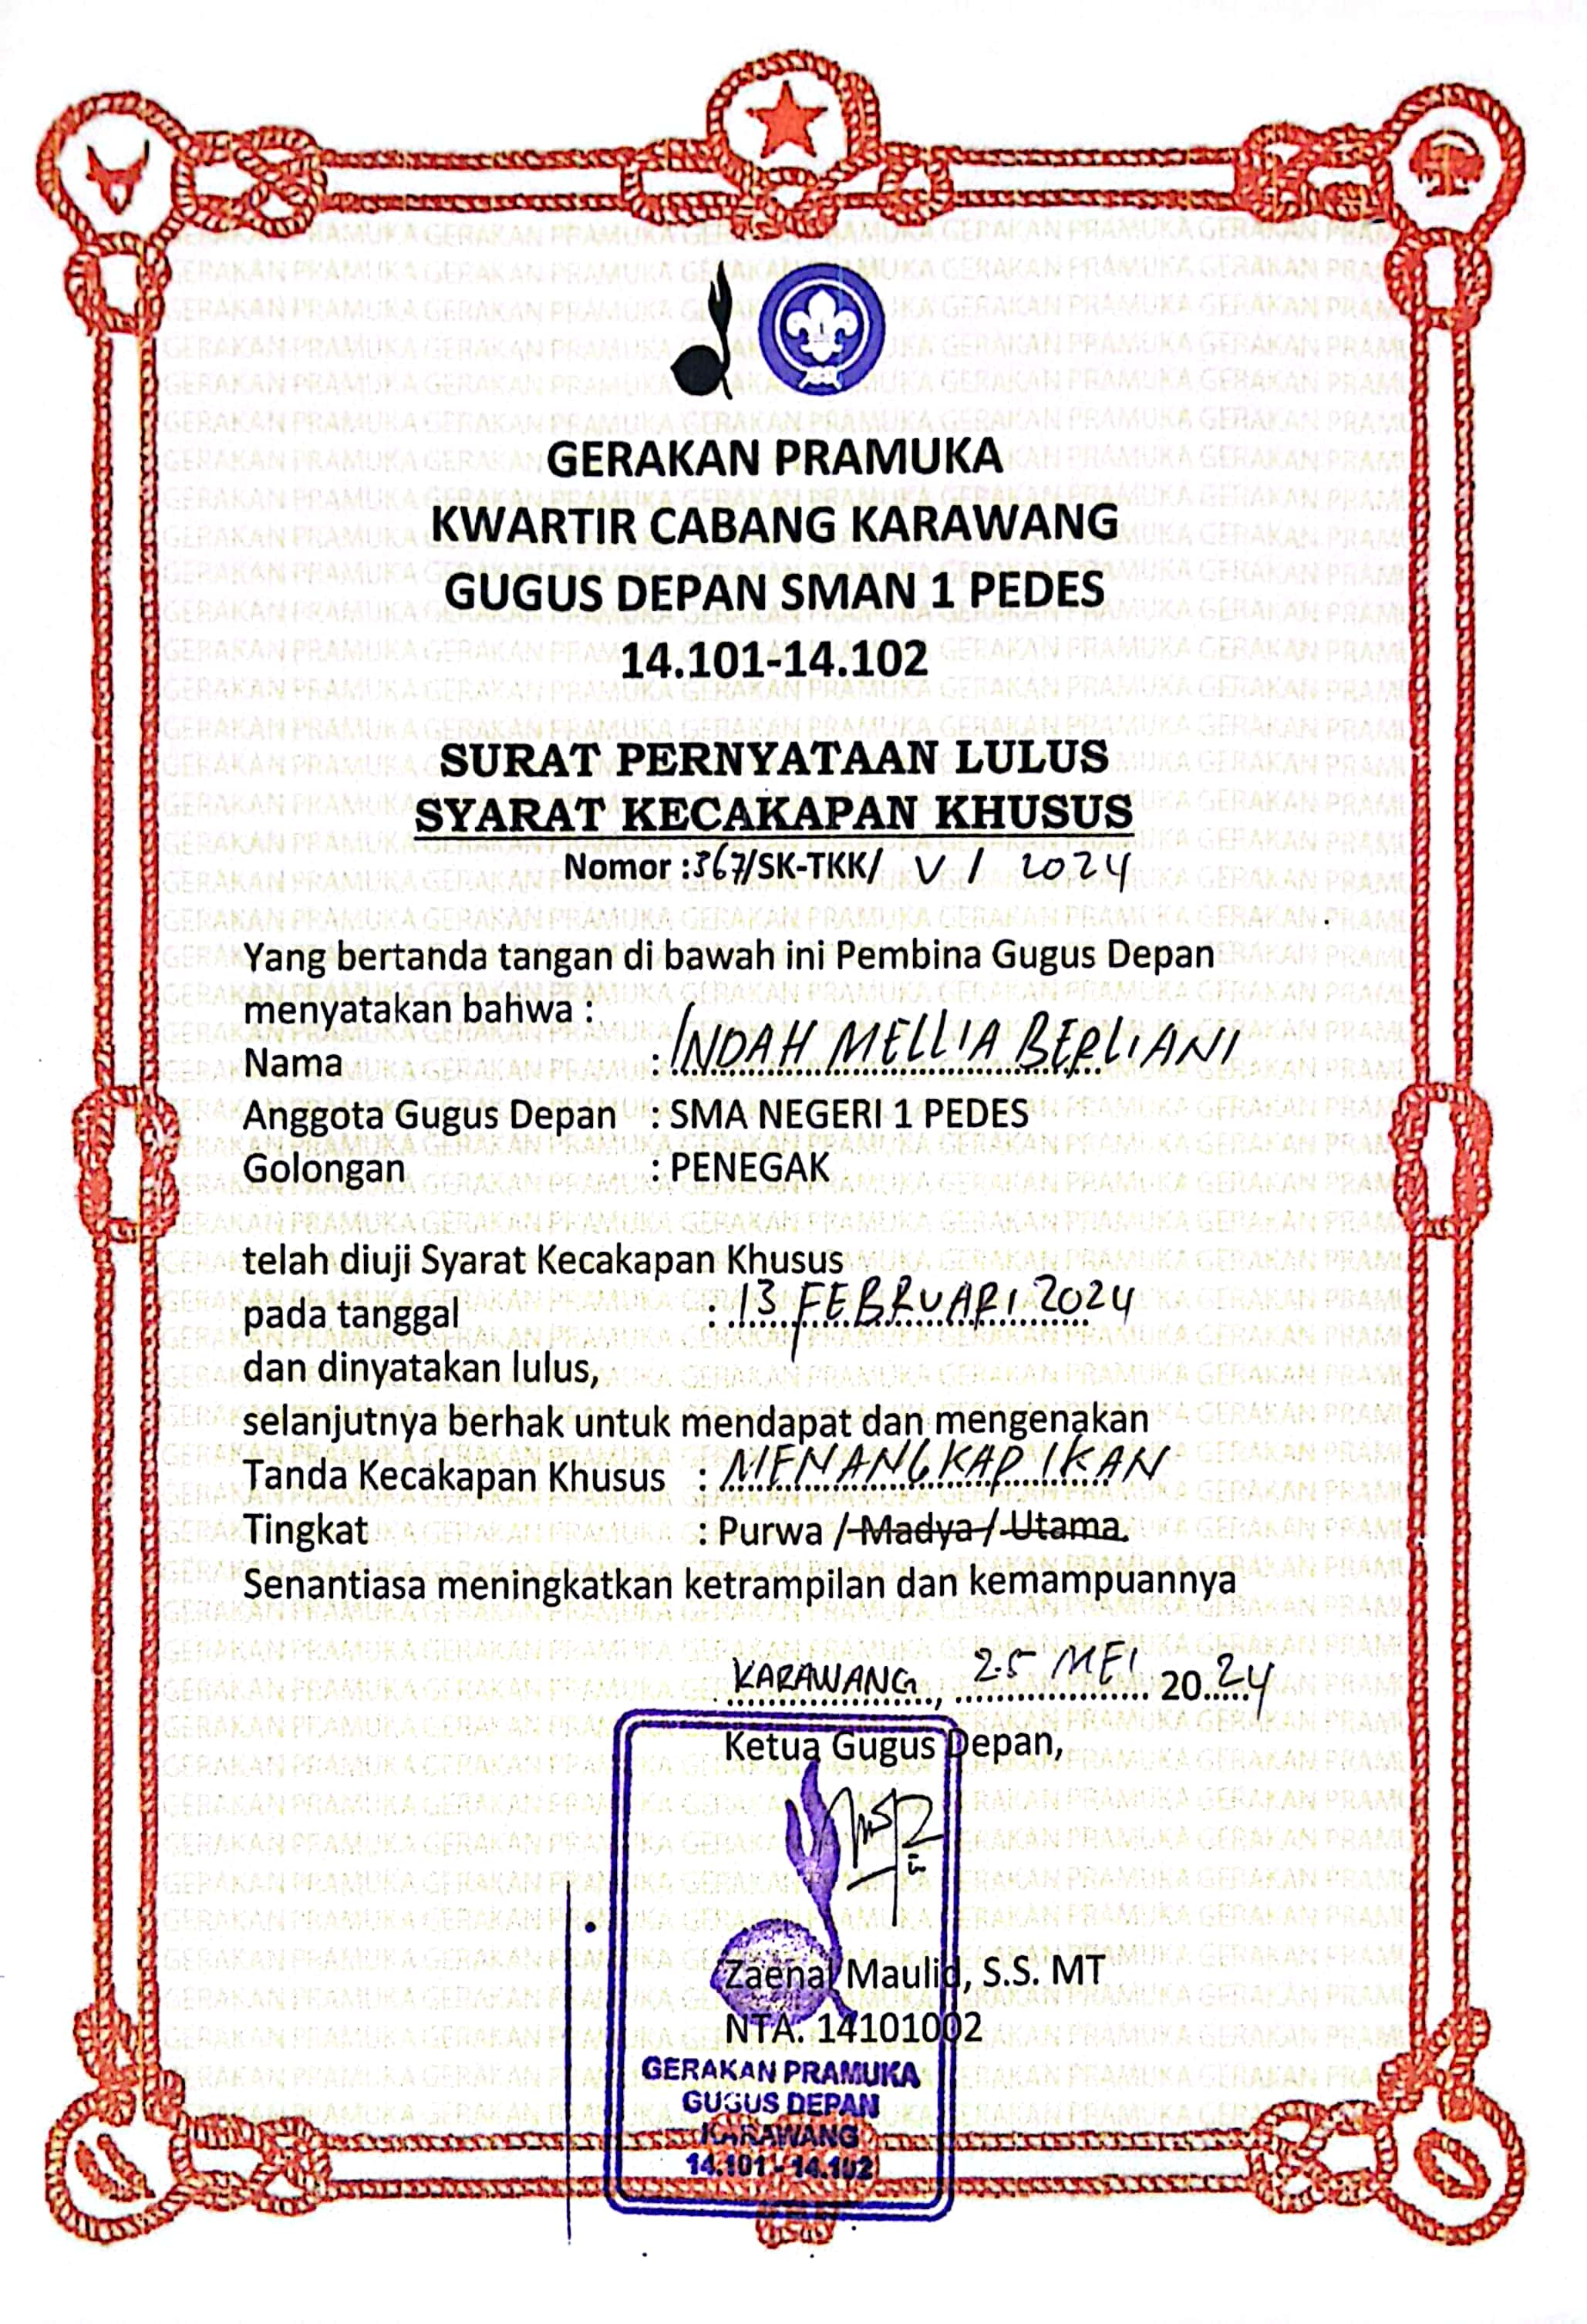 GERAKAN PRAMUKA
KWARTIR CABANG KARAWANG
GUGUS DEPAN SMAN 1 PEDES
14.101-14.102
SURAT PERNYATAAN LULUS
SYARAT KECAKAPAN KHUSUS
Nomor : 367/SK-TKK/ V / 2024
Yang bertanda tangan di bawah ini Pembina Gugus Depan
menyatakan bahwa :
Nama : INDAH MELLIA BERLIANI
Anggota Gugus Depan : SMA NEGERI 1 PEDES
Golongan : PENEGAK
telah diuji Syarat Kecakapan Khusus
pada tanggal : 13 FEBRUARI 2024
dan dinyatakan lulus,
selanjutnya berhak untuk mendapat dan mengenakan
Tanda Kecakapan Khusus : MENANGKAP IKAN
Tingkat : Purwa / Madya / Utama
Senantiasa meningkatkan ketrampilan dan kemampuannya
KARAWANG, 25 MEI 2024
Ketua Gugus Depan,
Zaenal Maulid, S.S. MT
NTA. 14101002
GERAKAN PRAMUKA
GUGUS DEPAN
KARAWANG
14.101 - 14.102